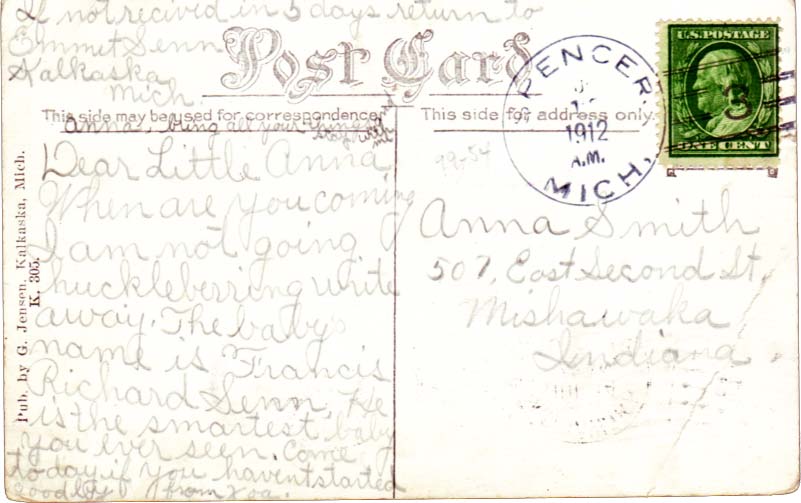 If not recived in 5 days return to
Emmet Senn
Kalkaska
Mich.
Post Card
This side may be used for correspondence
This side for address only.
Anna, bring all your things
stay with
me
Dear Little Anna
When are you coming
I am not going
huckleberring write
away. The babys
name is Francis
Richard Senn, He
is the smartest baby
you ever seen. Come
today if you havent started
Goodby from Zoa.
Pub. by G. Jensen, Kalkaska, Mich.
K. 305.
SPENCER.
1912
A.M.
MICH.
U.S. POSTAGE
ONE CENT
3
99-54
Anna Smith
507, East Second St,
Mishawaka
Indiana.